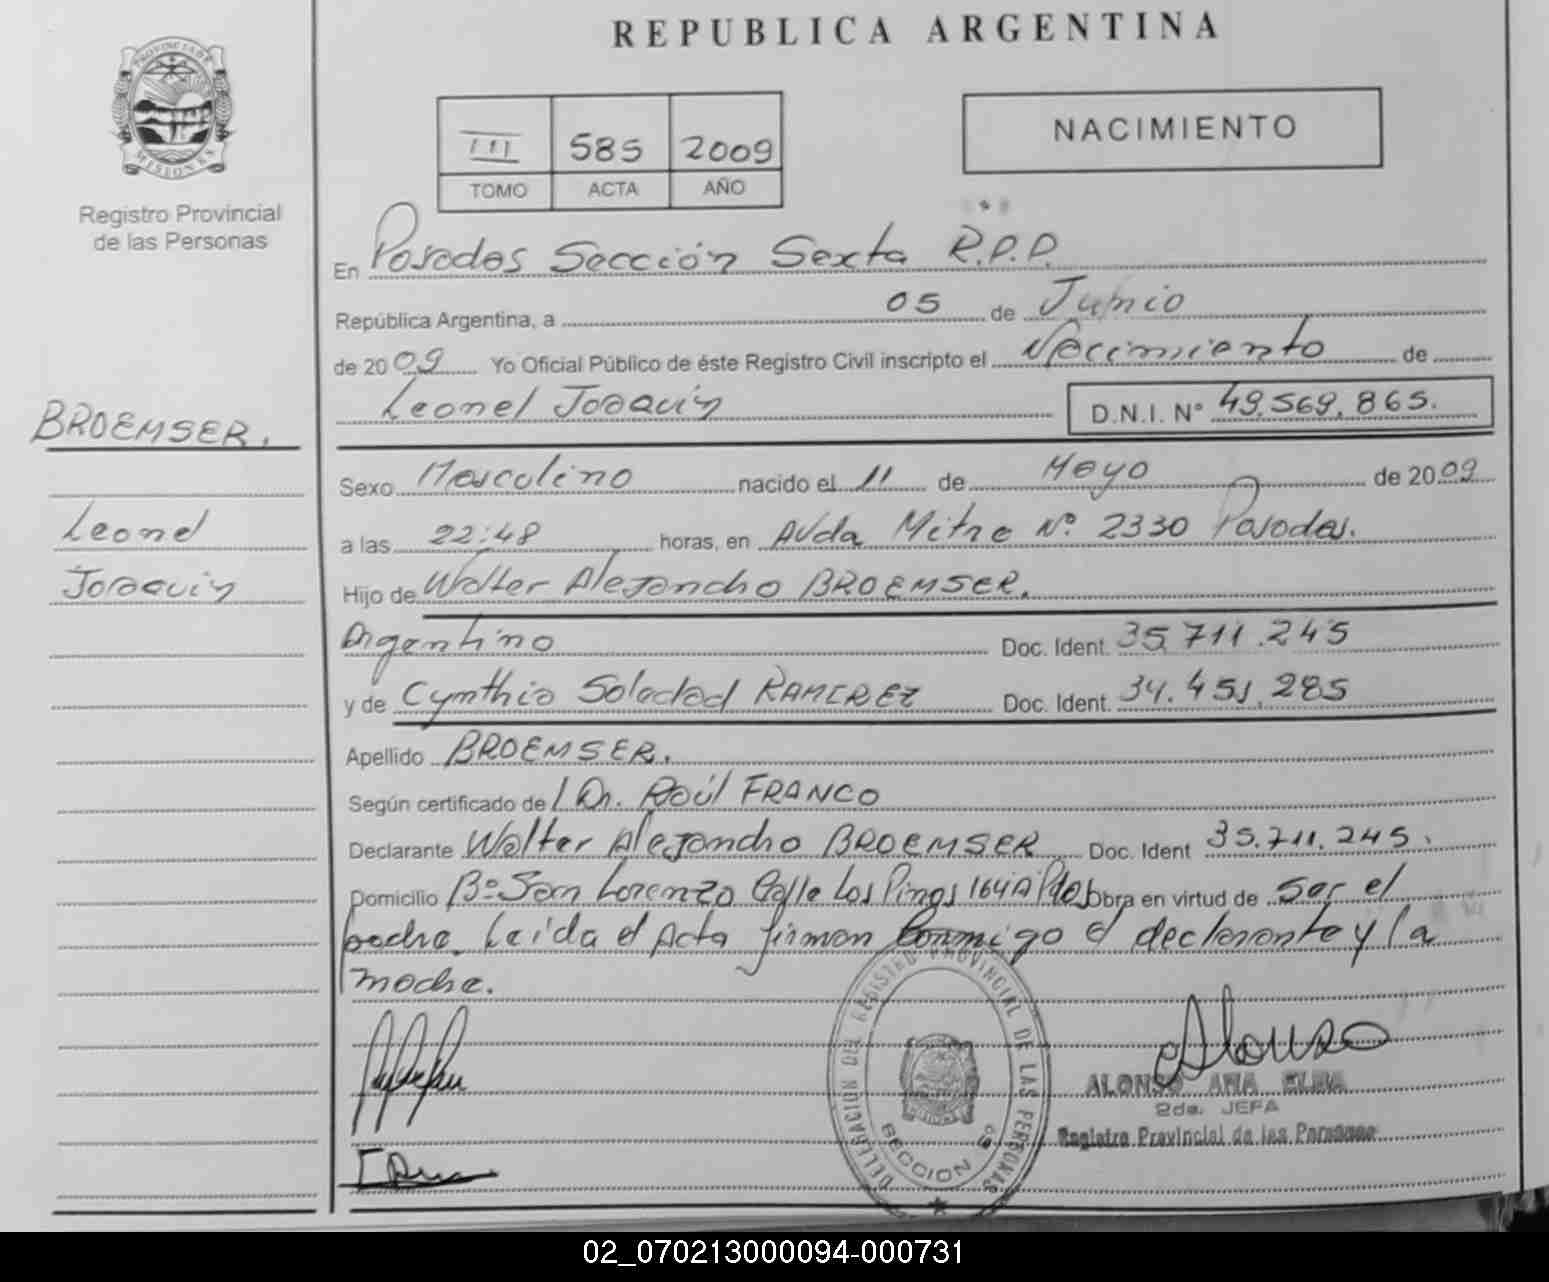 REPUBLICA ARGENTINA
PROVINCIA DE MISIONES
Registro Provincial
de las Personas
III 585 2009
TOMO ACTA AÑO
NACIMIENTO
En Posadas Sección Sexta R.P.P.
República Argentina, a 05 de Junio
de 2009 Yo Oficial Público de éste Registro Civil inscripto el Nacimiento de
Leonel Joaquín D.N.I. N° 49.569.865.
BROEMSER.
Leonel
Joaquín
Sexo Masculino nacido el 11 de Mayo de 2009
a las 22:48 horas, en Avda Mitre N° 2330 Posadas.
Hijo de Walter Alejandro BROEMSER.
Argentino Doc. Ident. 35.711.245
y de Cynthia Soledad RAMIREZ Doc. Ident. 34.451.285
Apellido BROEMSER.
Según certificado del Dr. Raúl FRANCO
Declarante Walter Alejandro BROEMSER Doc. Ident 35.711.245.
Domicilio B° San Lorenzo Calle Los Pinos 164A Pdas Obra en virtud de ser el
padre. Leída el Acta firman conmigo el declarante y la
madre.
DELEGACION DEL REGISTRO PROVINCIAL DE LAS PERSONAS
SECCION 6°
Alonso
ALONSO ANA ELBA
2da. JEFA
Registro Provincial de las Personas
02_070213000094-000731